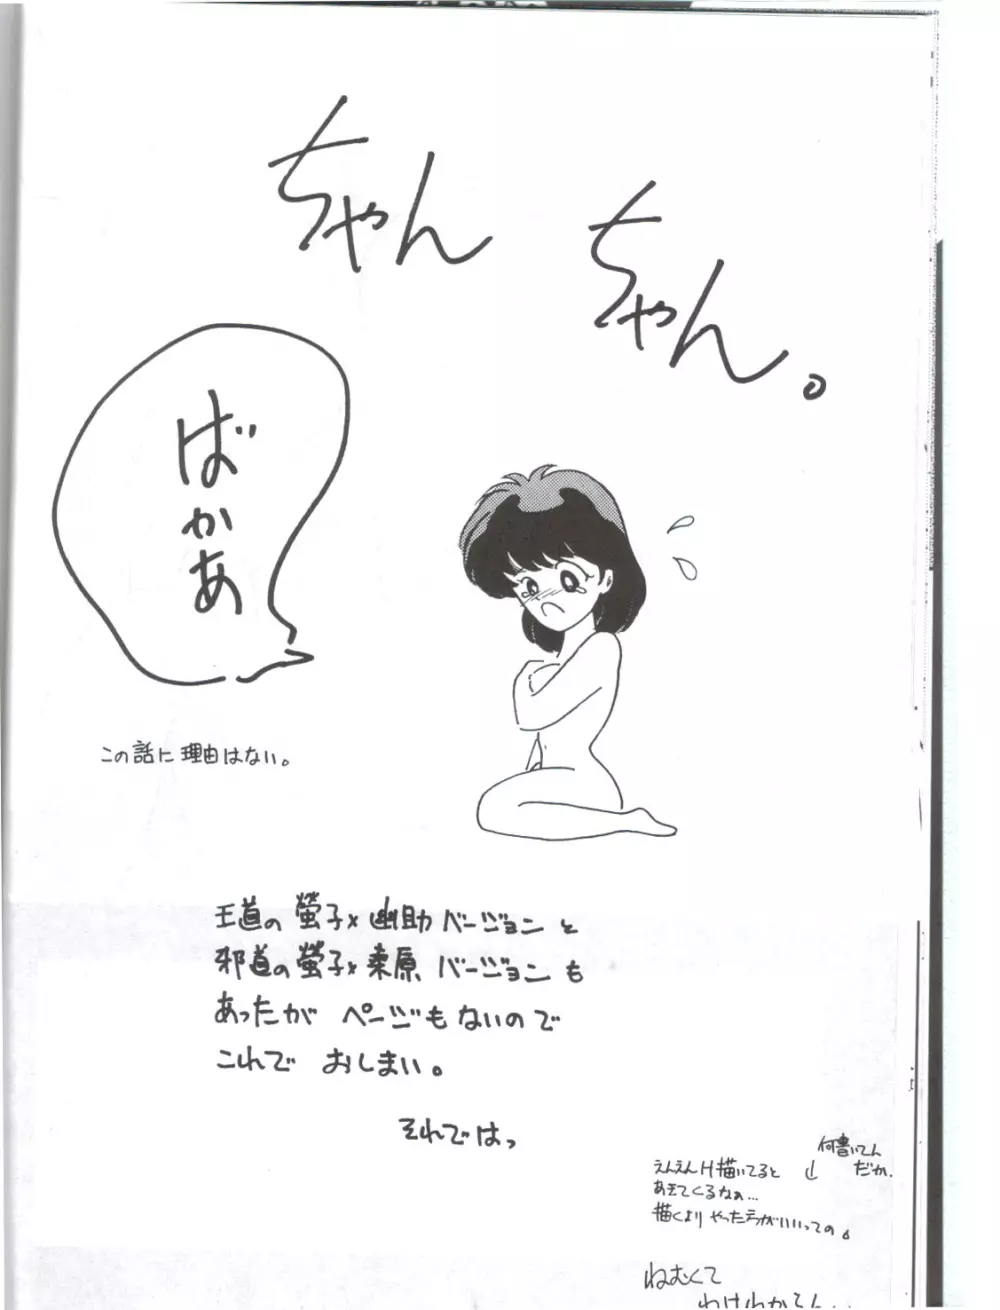 ちゃん
ちゃん。
ばかあ
この話に理由はない。
王道の螢子×幽助バージョンと
邪道の螢子×桑原バージョンも
あったが ページもないので
これで おしまい。
それではっ
何書いてん
だか。
えんえんH描いてると
あきてくるなぁ…
描くより やった方がいいっての。
ねむくて